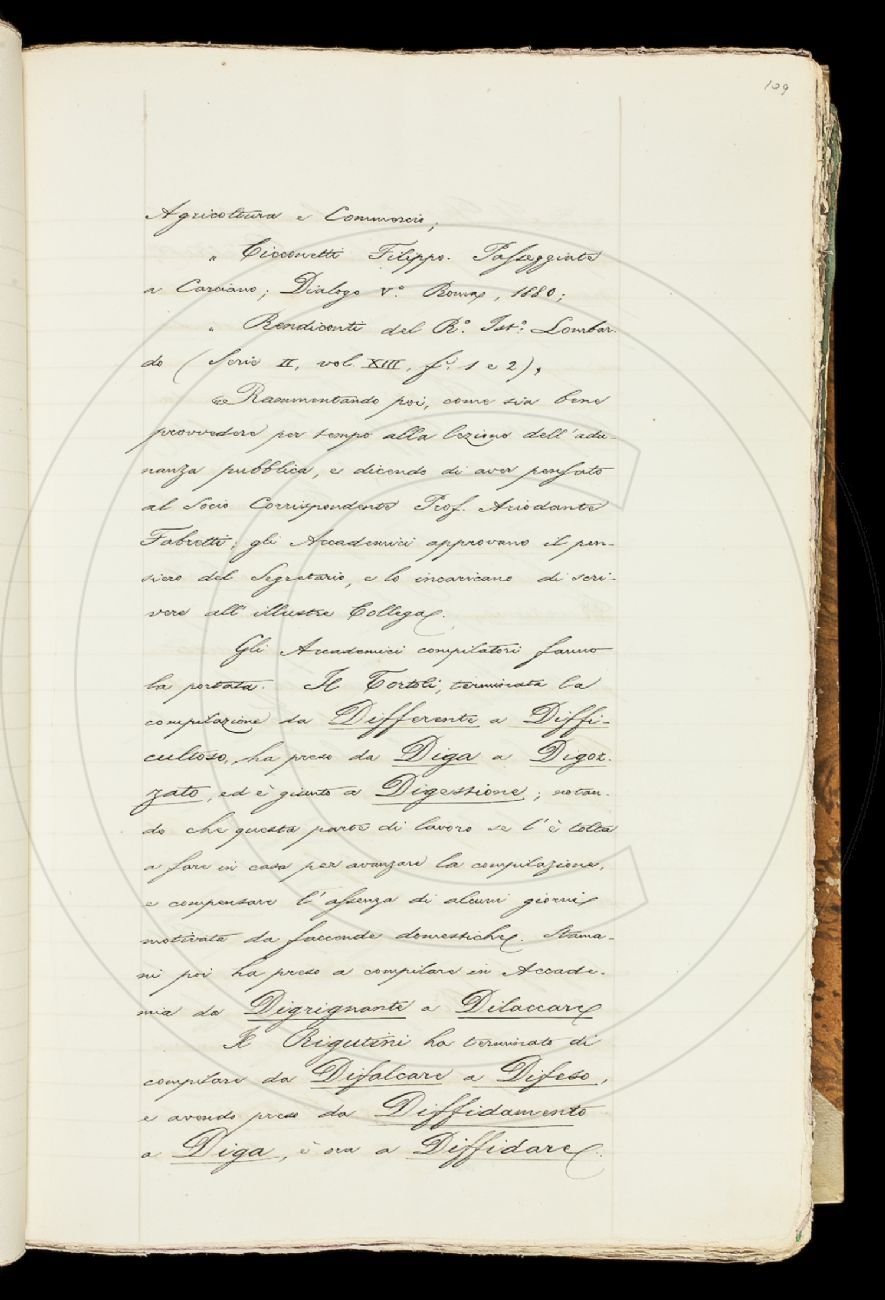 109
Agricoltura e Commercio;
" Cicconetti Filippo. Passeggiate
a Carciano; Dialogo V.º Roma, 1880;
" Rendiconti del R.º Ist.º Lombar-
do (Serie II, vol. XIII, f.i 1 e 2).
Rammentando poi, come sia bene
provvedere per tempo alla lezione dell'adu-
nanza pubblica, e dicendo di aver pensato
al Socio Corrispondente Prof. Ariodante
Fabretti; gli Accademici approvano il pen-
siero del Segretario, e lo incaricano di scri-
vere all'illustre Collega.
Gli Accademici compilatori fanno
la portata. Il Tortoli, terminata la
compilazione da Differente a Diffi-
cultoso, ha preso da Diga a Digoz-
zato, ed è giunto a Digestione; notan-
do che questa parte di lavoro se l'è tolta
a fare in casa per avanzare la compilazione,
e compensare l'assenza di alcuni giorni
motivata da faccende domestiche. Stama-
ni poi ha preso a compilare in Accade-
mia da Digrignante a Dilaccare
Il Rigutini ha terminato di
compilare da Difalcare a Difeso,
e avendo preso da Diffidamento
a Diga, è ora a Diffidare.